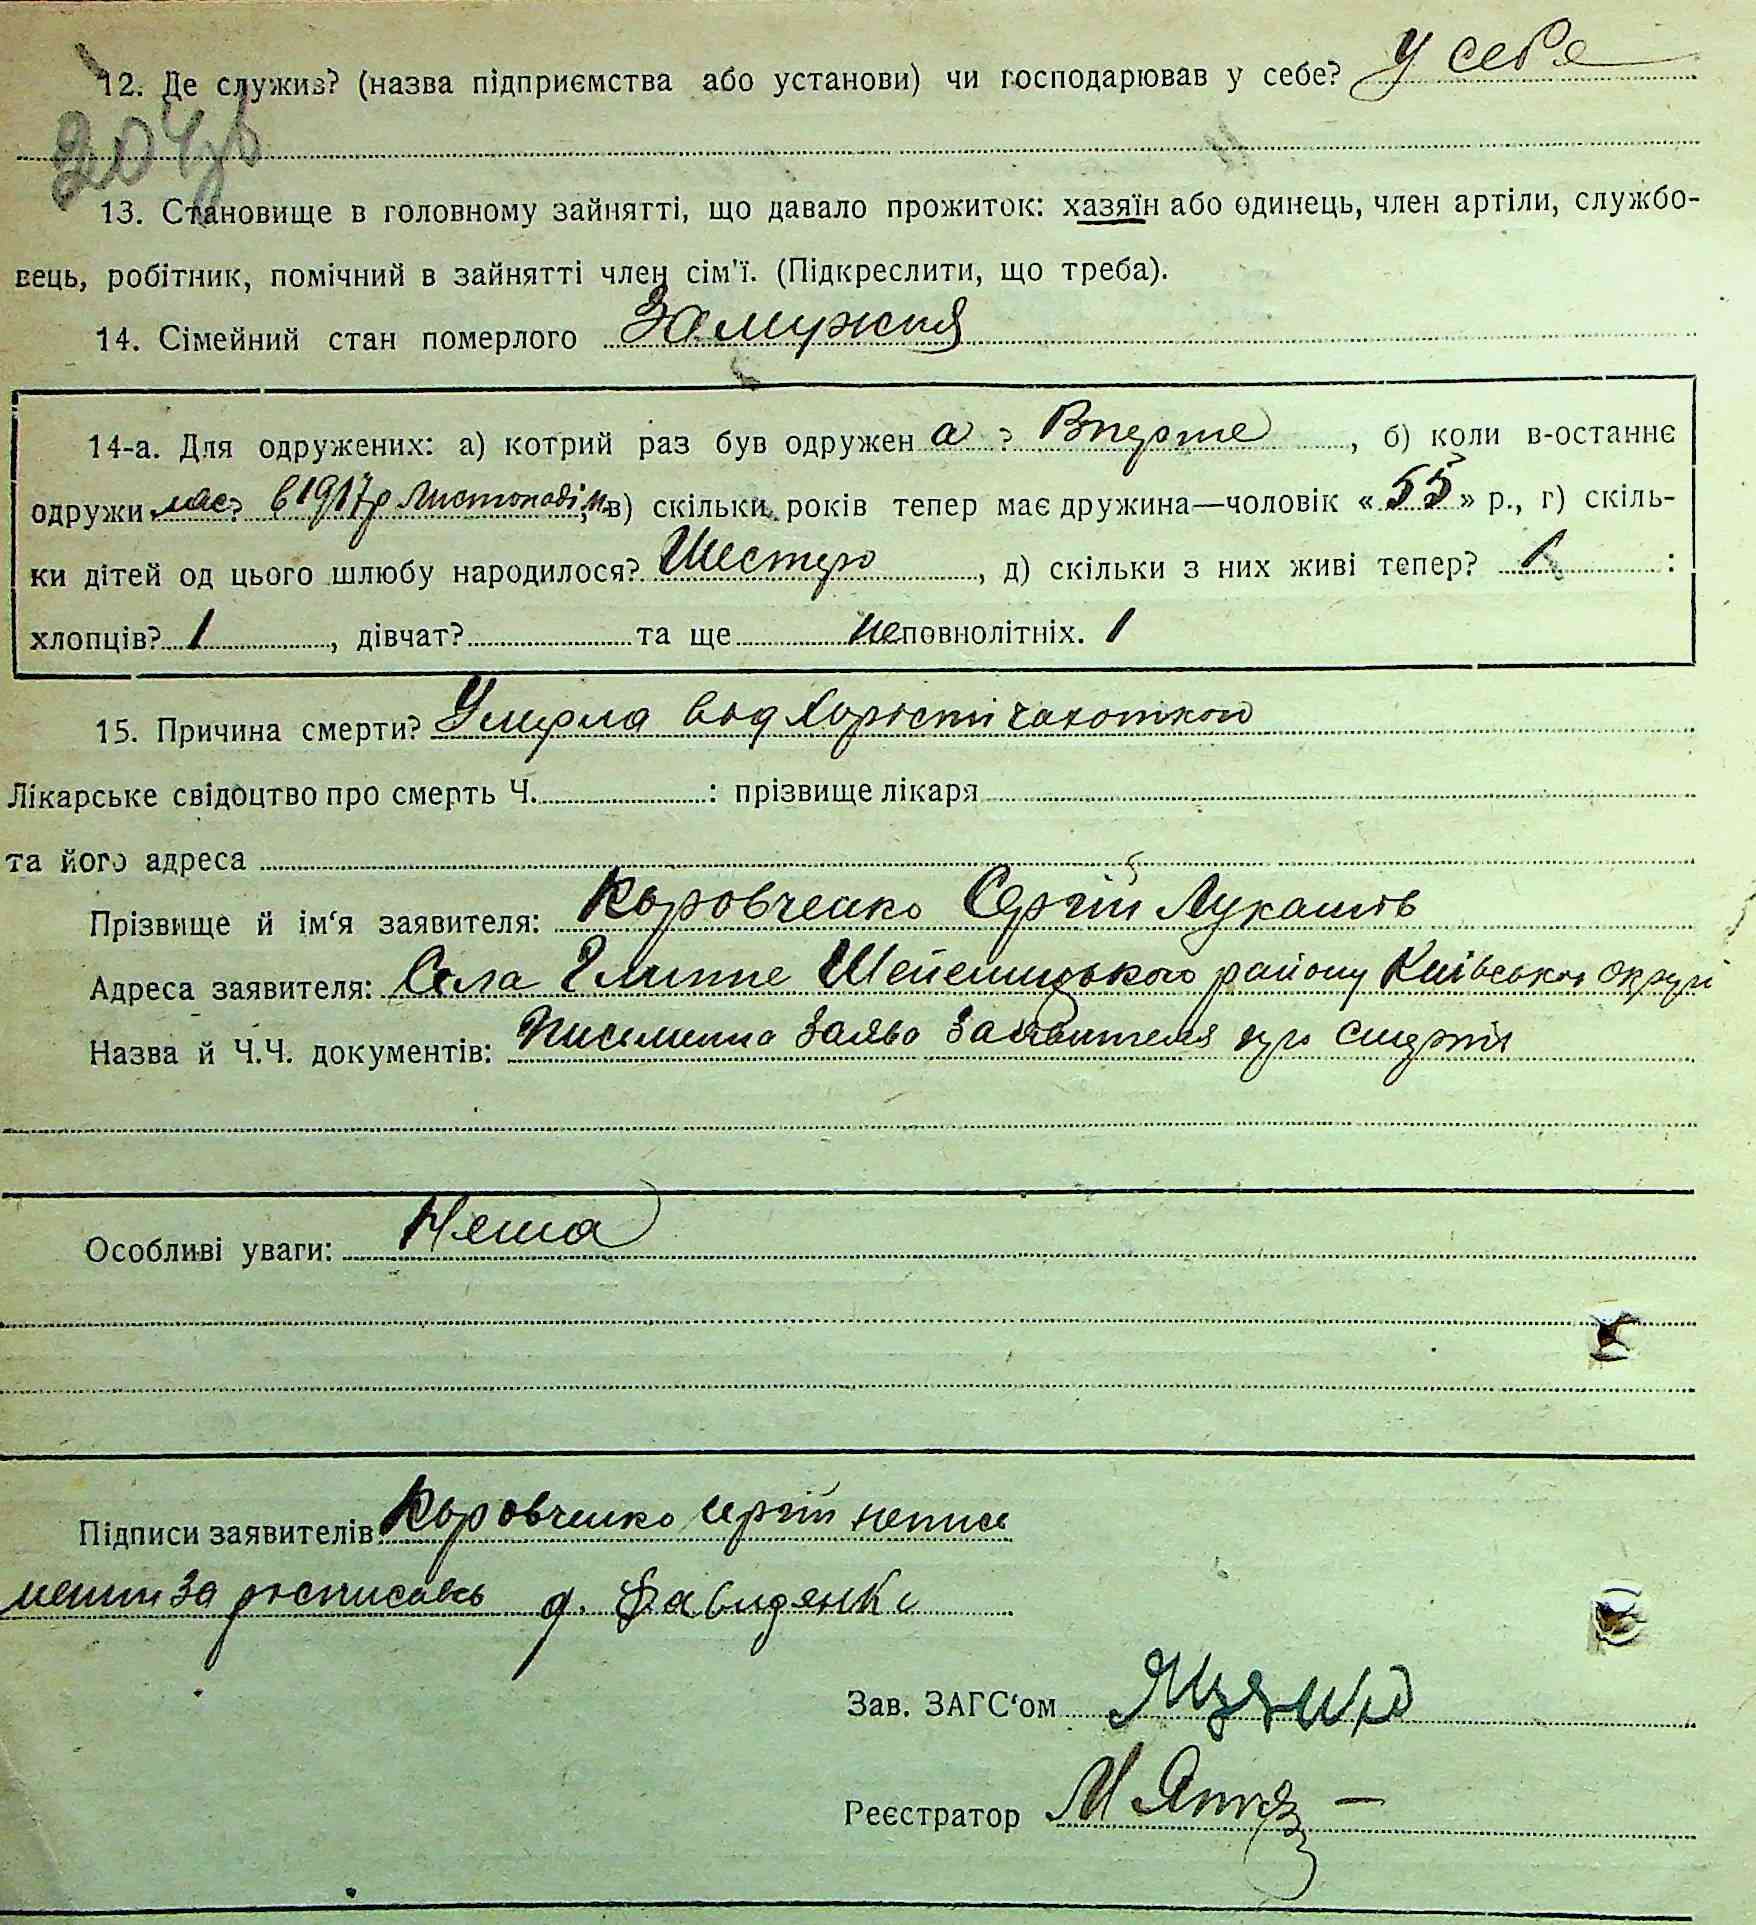 12. Де служив? (назва підприємства або установи) чи господарював у себе? У себе
204зв
13. Становище в головному зайнятті, що давало прожиток: хазяїн або одинець, член артіли, службо-
вець, робітник, помічний в зайнятті член сім'ї. (Підкреслити, що треба).
14. Сімейний стан померлого Замужня
14-а. Для одружених: а) котрий раз був одружен а ? Вперше, б) коли в-останнє
одружилас? в 1917р Листопаді м. в) скільки років тепер має дружина—чоловік «55» р., г) скіль-
ки дітей од цього шлюбу народилося? Шестеро, д) скільки з них живі тепер? 1 :
хлопців? 1, дівчат? та ще неповнолітніх. 1
15. Причина смерти? Умерла вод хорости чахоткою
Лікарське свідоцтво про смерть Ч. : прізвище лікаря
та його адреса
Прізвище й ім'я заявителя: Коровченко Сергій Лукашів
Адреса заявителя: Села району Київської округи
Назва й Ч.Ч. документів: Писменна заява заявителя про смерть
Особливі уваги: Нема
Підписи заявителів Коровченко Сергій неписе
менни за росписавсь Давиденко
Зав. ЗАГС'ом
Реєстратор М